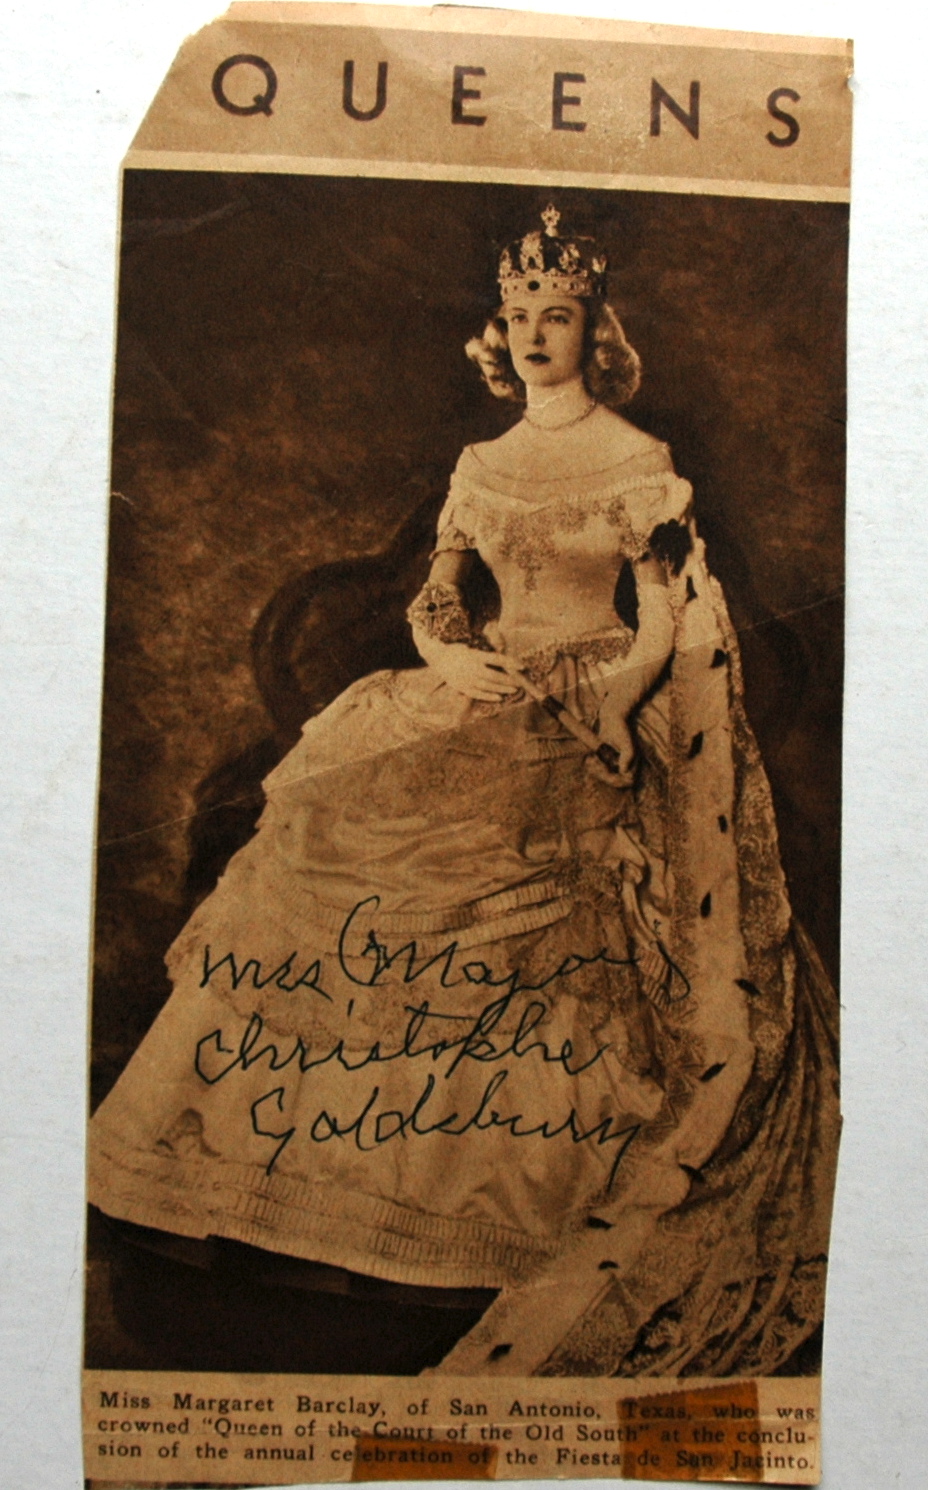 QUEENS
Mrs (Major)
Christophe
Goldsbury
Miss Margaret Barclay, of San Antonio, Texas, who was
crowned "Queen of the Court of the Old South" at the conclu-
sion of the annual celebration of the Fiesta de San Jacinto.